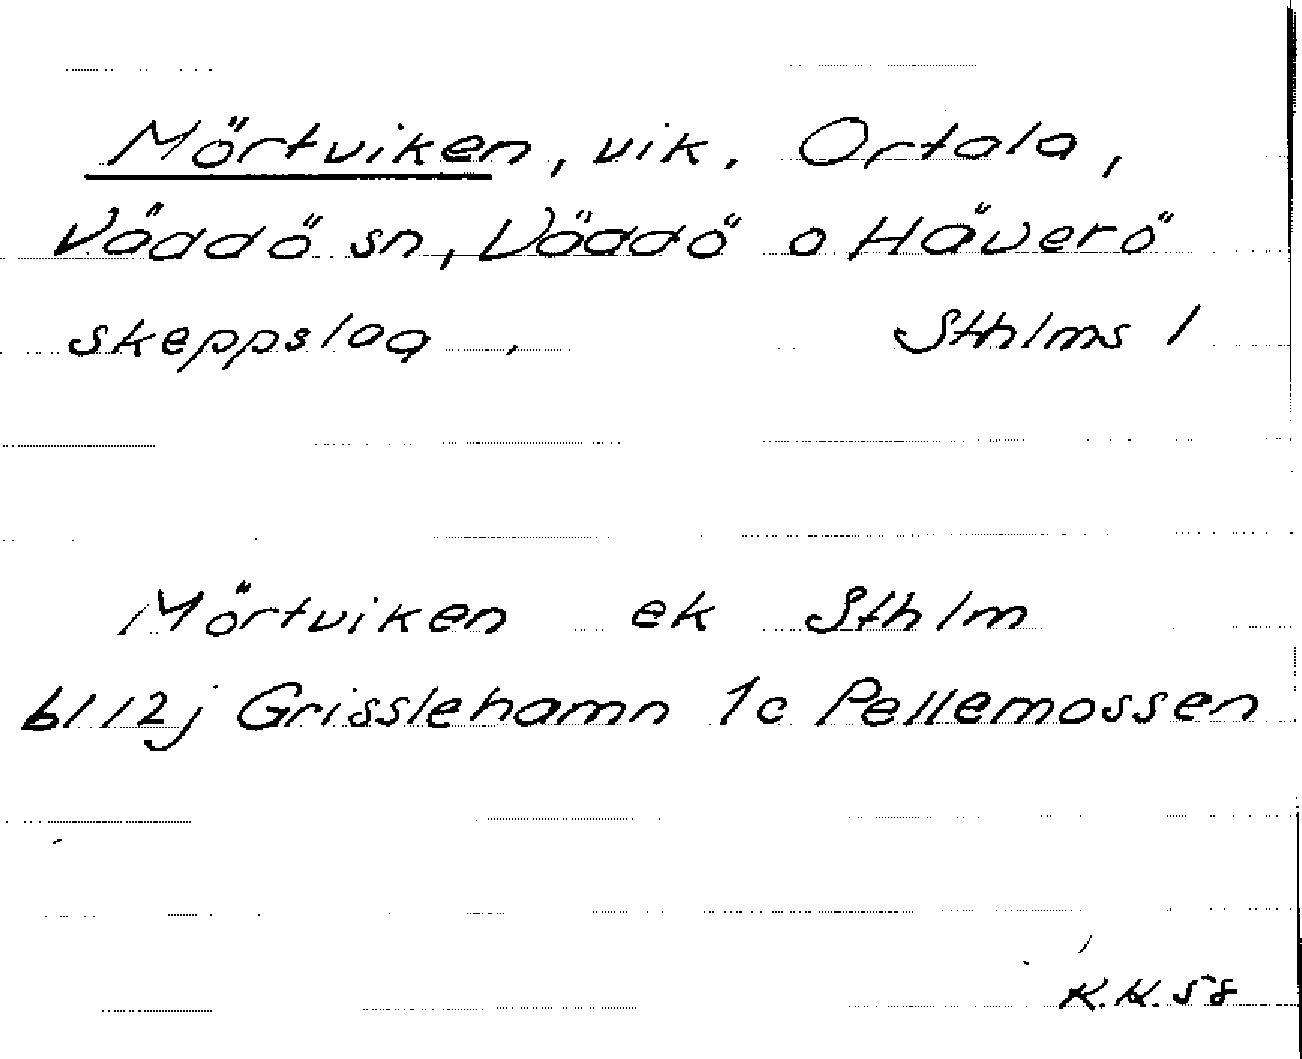 Mörtviken, vik. Ortala,
Väddö sn, Väddö o Häverö
skeppslag. Sthlms l
Mörtviken ek Sthlm
bl 12j Grisslehamn 1c Pellemossen
K.H. 58